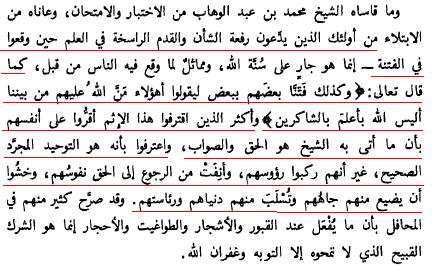 وما قاساه الشيخ محمد بن عبد الوهاب من الاختبار والامتحان، وعاناه من
الابتلاء من أولئك الذين يدّعون رفعة الشأن والقدم الراسخة في العلم حين وقعوا
في الفتنة ــ إنما هو جارٍ على سُنَّة الله، ومماثلٌ لما وقع فيه الناس من قبل، كما
قال تعالى: ﴿وكذلك فَتَنَّا بعضَهم ببعض ليقولوا أهؤلاء مَنَّ اللهُ عليهم من بيننا
أليس الله بأعلمَ بالشاكرين﴾ وأكثر الذين اقترفوا هذا الإثم أقرُّوا على أنفسهم
بأن ما أتى به الشيخ هو الحق والصواب، واعترفوا بأنه هو التوحيد المجرَّد
الصحيح، غير أنهم ركبوا رؤوسهم، وأنِفَتْ من الرجوع إلى الحق نفوسُهم، وخشُوا
أن يضيع منهم جاهُهم وتُسْلَبَ منهم دنياهم ورئاستهم. وقد صرَّح كثير منهم في
المحافل بأن ما يُفْعَل عند القبور والأشجار والطواغيت والأحجار إنما هو الشرك
القبيح الذي لا تمحوه إلا التوبه وغفران الله.